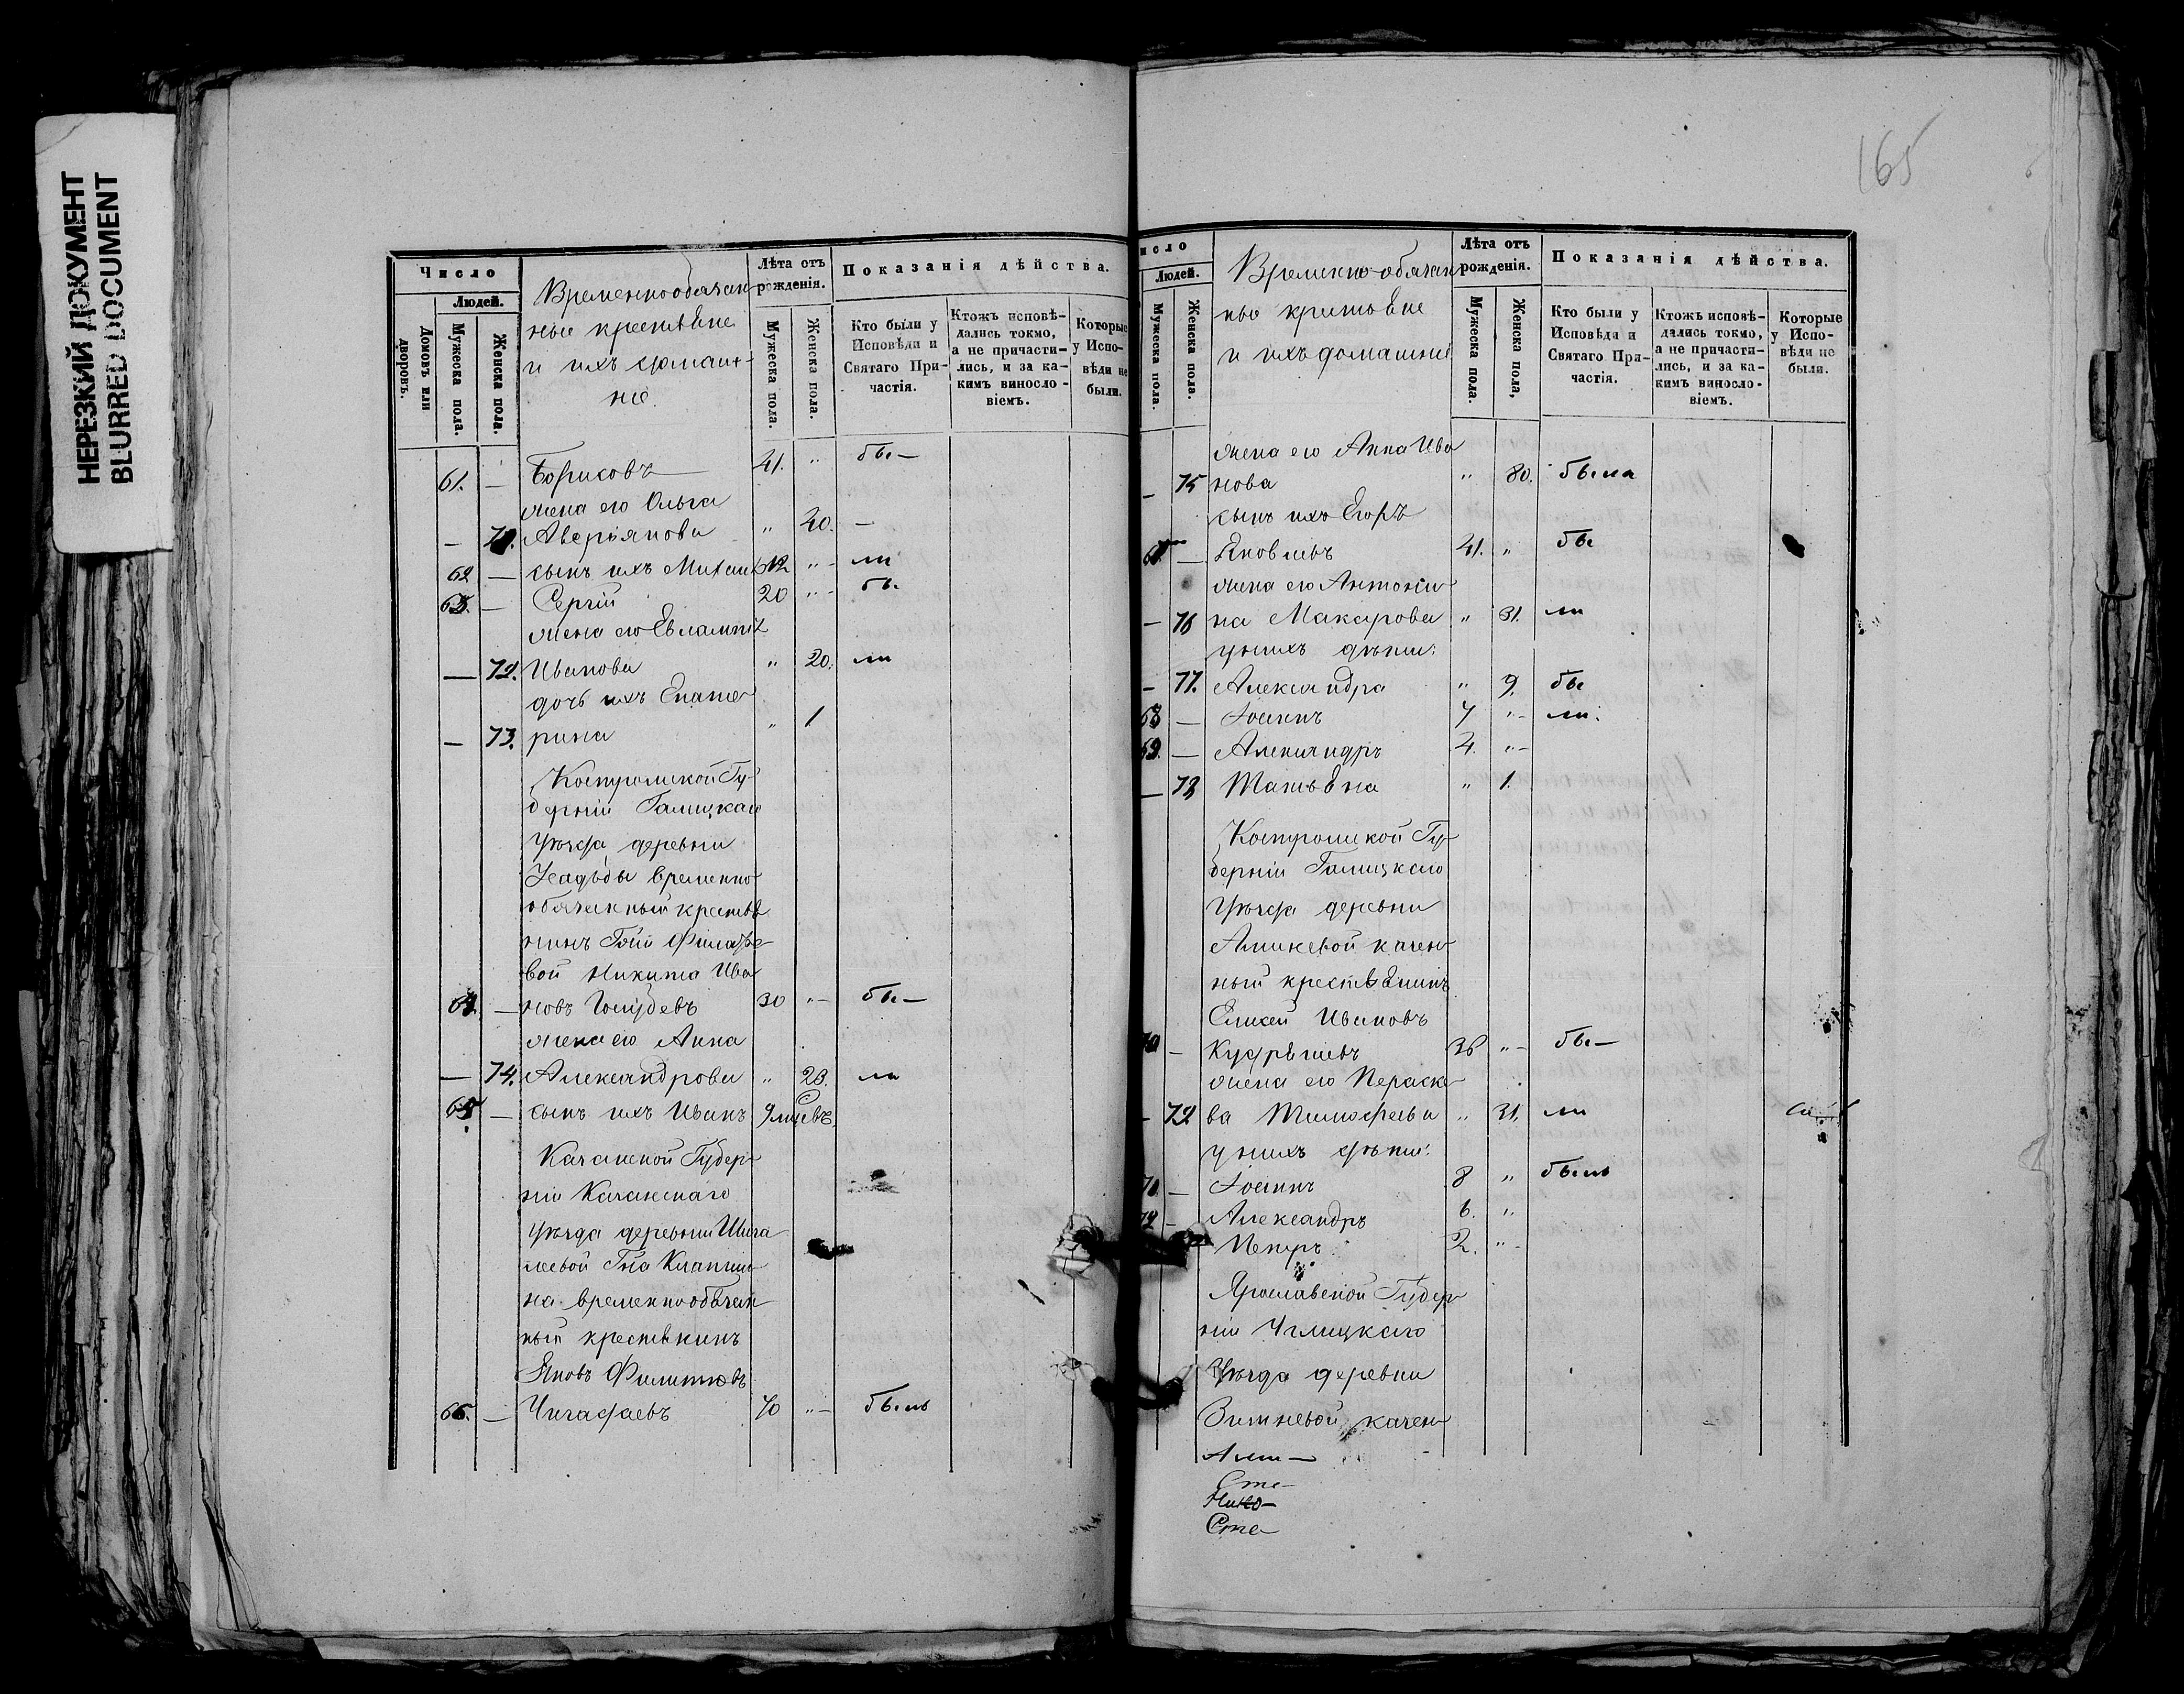 НЕРЕЗКИЙ ДОКУМЕНТ
BLURRED DOCUMENT
Число
Людей.
Домовъ или дворовъ.
Мужеска пола.
Женска пола.
Временнообязан
ные крестьяне
и ихъ домаш-
ніе.
Лѣта отъ рожденія.
Мужеска пола.
Женска пола.
Показанія дѣйства.
Кто были у Исповѣди и Святаго Причастія.
Ктожъ исповѣ-
дались токмо,
а не причасти-
лись, и за ка-
кимъ винosло-
віемъ.
Которые
у Испо-
вѣди не
были.
61. — Борисовъ 41. " бы—
жена его Ольга
— Аверіянова " 40. —
62 — сынъ ихъ Михаилъ 12 " ли
63. — Сергій 20 " бы
жена его Евлампія
— 72. Иванова " 20. ли
дочь ихъ Екате
— 73. рина " 1
Костромской Гу-
берніи Галицкаго
Уѣзда деревни
Усадьбы временно
обязанный крестья
нинъ Гжи Филатье-
вой Никита Ива
64. — новъ Голубевъ 30 " бы—
жена его Анна
— 74. Александрова " 23. ли
65. — сынъ ихъ Иванъ 9 мцевъ
Казанской Губер
ніи Казанскаго
уѣзда деревни Шига
левой Гна
на временнообязан
ный крестьянинъ
Яковъ Филипповъ
66. — Чигадаевъ 70 " былъ
165
исло
Людей.
Мужеска пола.
Женска пола.
Временно-обязан
ные крестьяне
и ихъ домашніе
Лѣта отъ
рожденія.
Мужеска пола.
Женска пола,
Показанія дѣйства.
Кто были у
Исповѣди и
Святаго При-
частія.
Ктожъ исповѣ-
дались токмо,
а не причасти-
лись, и за ка-
кимъ винosло-
віемъ.
Которые
у Испо-
вѣди не
были.
жена его Анна Ива
— 75 нова " 80. была
сынъ ихъ Егоръ
— Яковлевъ 41. " бы
жена его Антони
— 76 на Макарова " 31. ли
у нихъ дѣти:
— 77. Александра " 9. бы
68 — Іоаннъ 7 " ли.
69. — Александръ 4. "
— 78 Татьяна " 1.
Костромской Гу-
берніи Галицкаго
Уѣзда деревни
казен
ный крестьянинъ
Елисей Ивановъ
70 — Кудряшевъ 36 " бы—
жена его Параске
— ва Тимофеева " 31, ли
у нихъ дѣти:
71 — Іоаннъ 8 " былъ
72 — Александръ 6. "
Петръ 2. "
Ярославской Губер
ніи Углицкаго
Уѣзда деревни
Зимневой казен
Сте-
Нико-
Сте